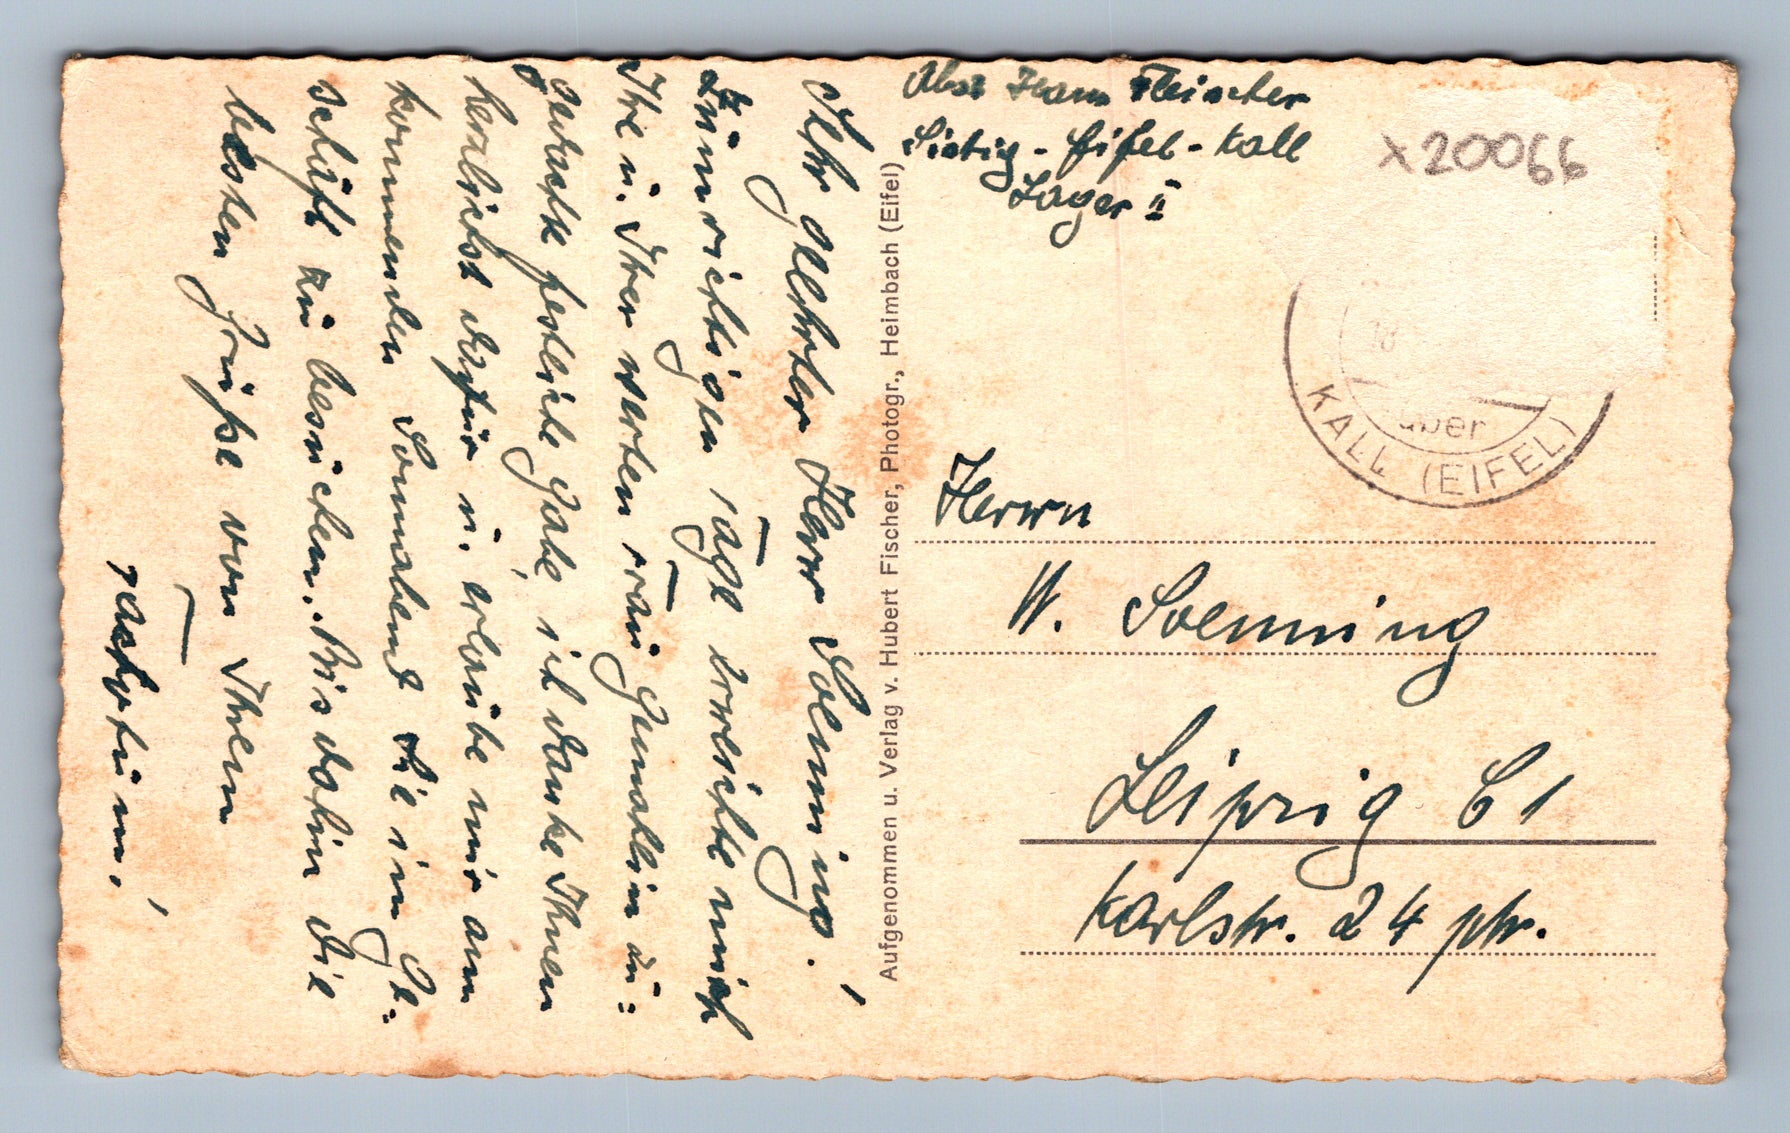 Sehr geehrter Herr Soenning!
Zum richtigen Tage erreichte mich
Ihre u. Ihrer werten Frau Gemahlin zu=
gedachte festliche Gabe, ich danke Ihnen
herzlichst dafür u. erlaube mir am
kommenden Sonnabend Sie im Ge=
schäft zu besuchen. Bis dahin die
besten Grüße von Ihrem
Aufgenommen u. Verlag v. Hubert Fischer, Photogr., Heimbach (Eifel)
Abs: Hans Fleischer
Sistig - Eifel - Kall
Lager II
x20066
über
KALL (EIFEL)
Herrn
W. Soenning
Leipzig C 1
Karlstr. 24 ptr.